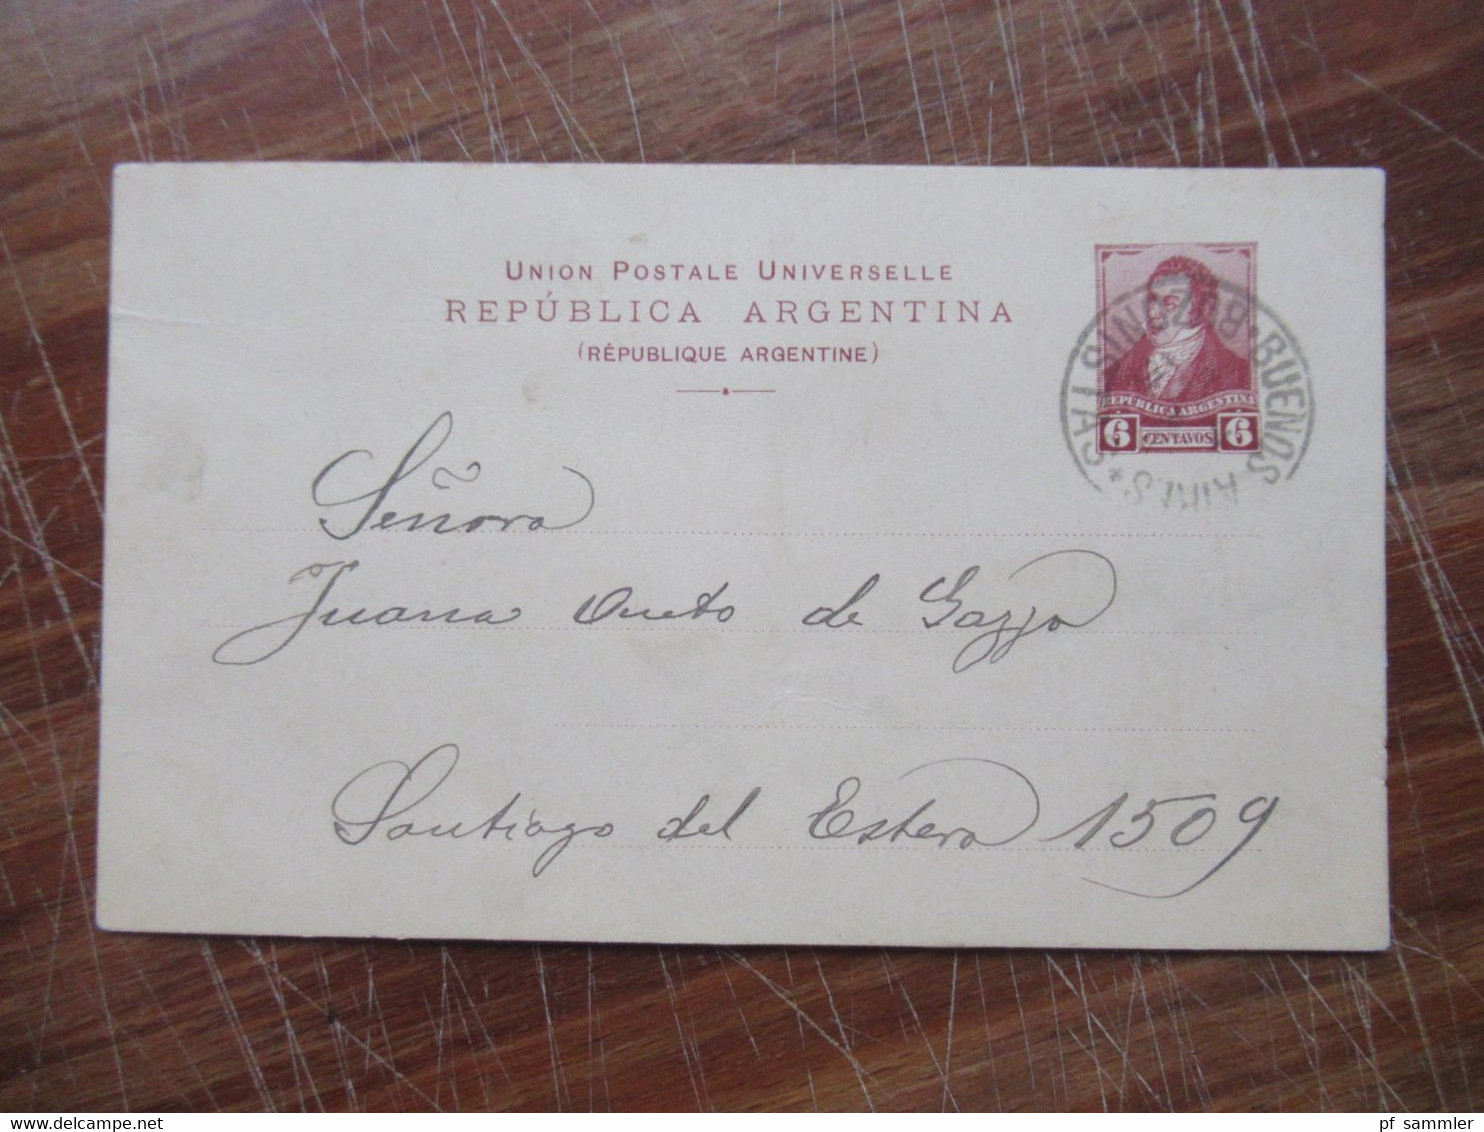 UNION POSTALE UNIVERSELLE
REPÚBLICA ARGENTINA
(RÉPUBLIQUE ARGENTINE)
REPUBLICA ARGENTINA
6 CENTAVOS 6
BUENOS AIRES
Señora
Juana Oneto de Gazzo
Santiago del Estero 1509
pf sammler
Delcampe.net